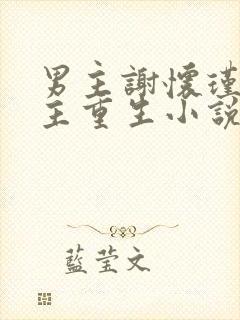 男主謝懷瑾
主重生小說
藍莹文